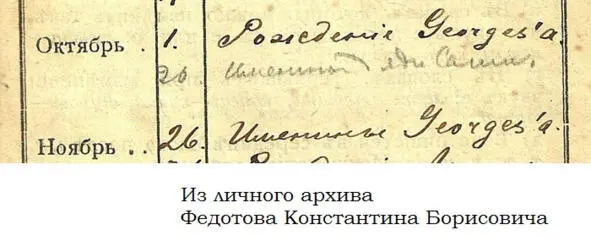 Октябрь . 1. Рожденіе Georges'а.
26 Именины дяди Саши.
Ноябрь . . 26. Именины Georges'а.
Из личного архива
Федотова Константина Борисовича